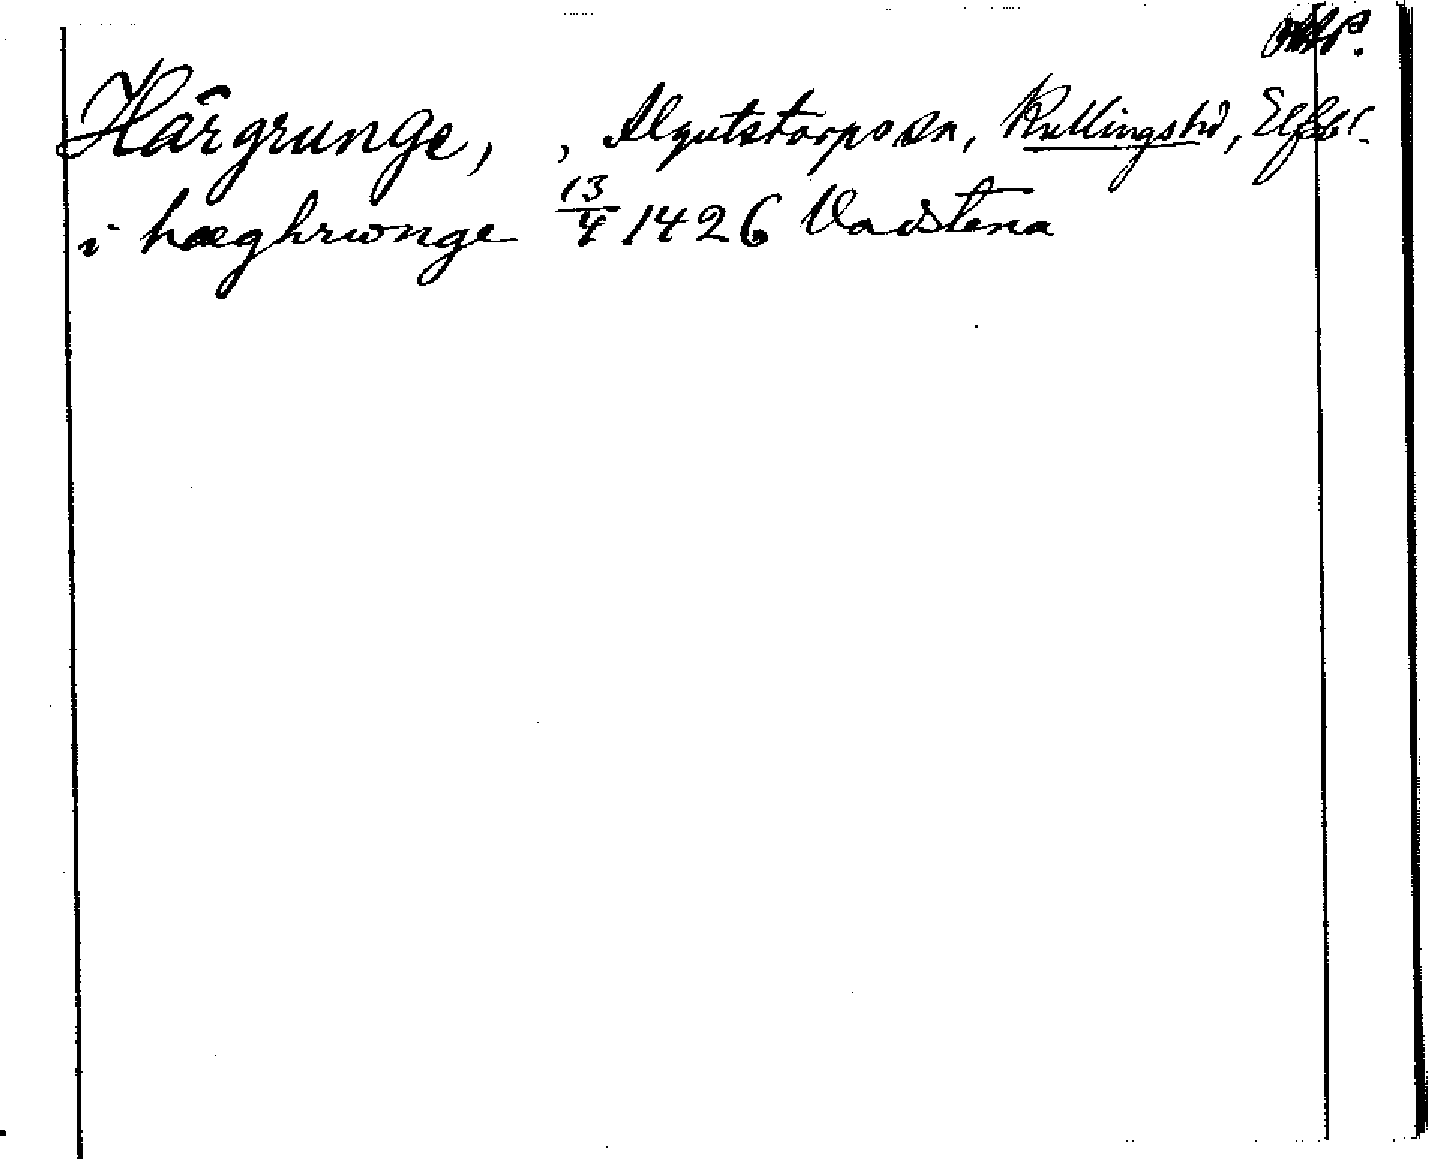 Härgrunge, , Algutstorps sn, Kullings hd, Elfsb l.
i hæghrwnge 13/4 1426 Vadstena